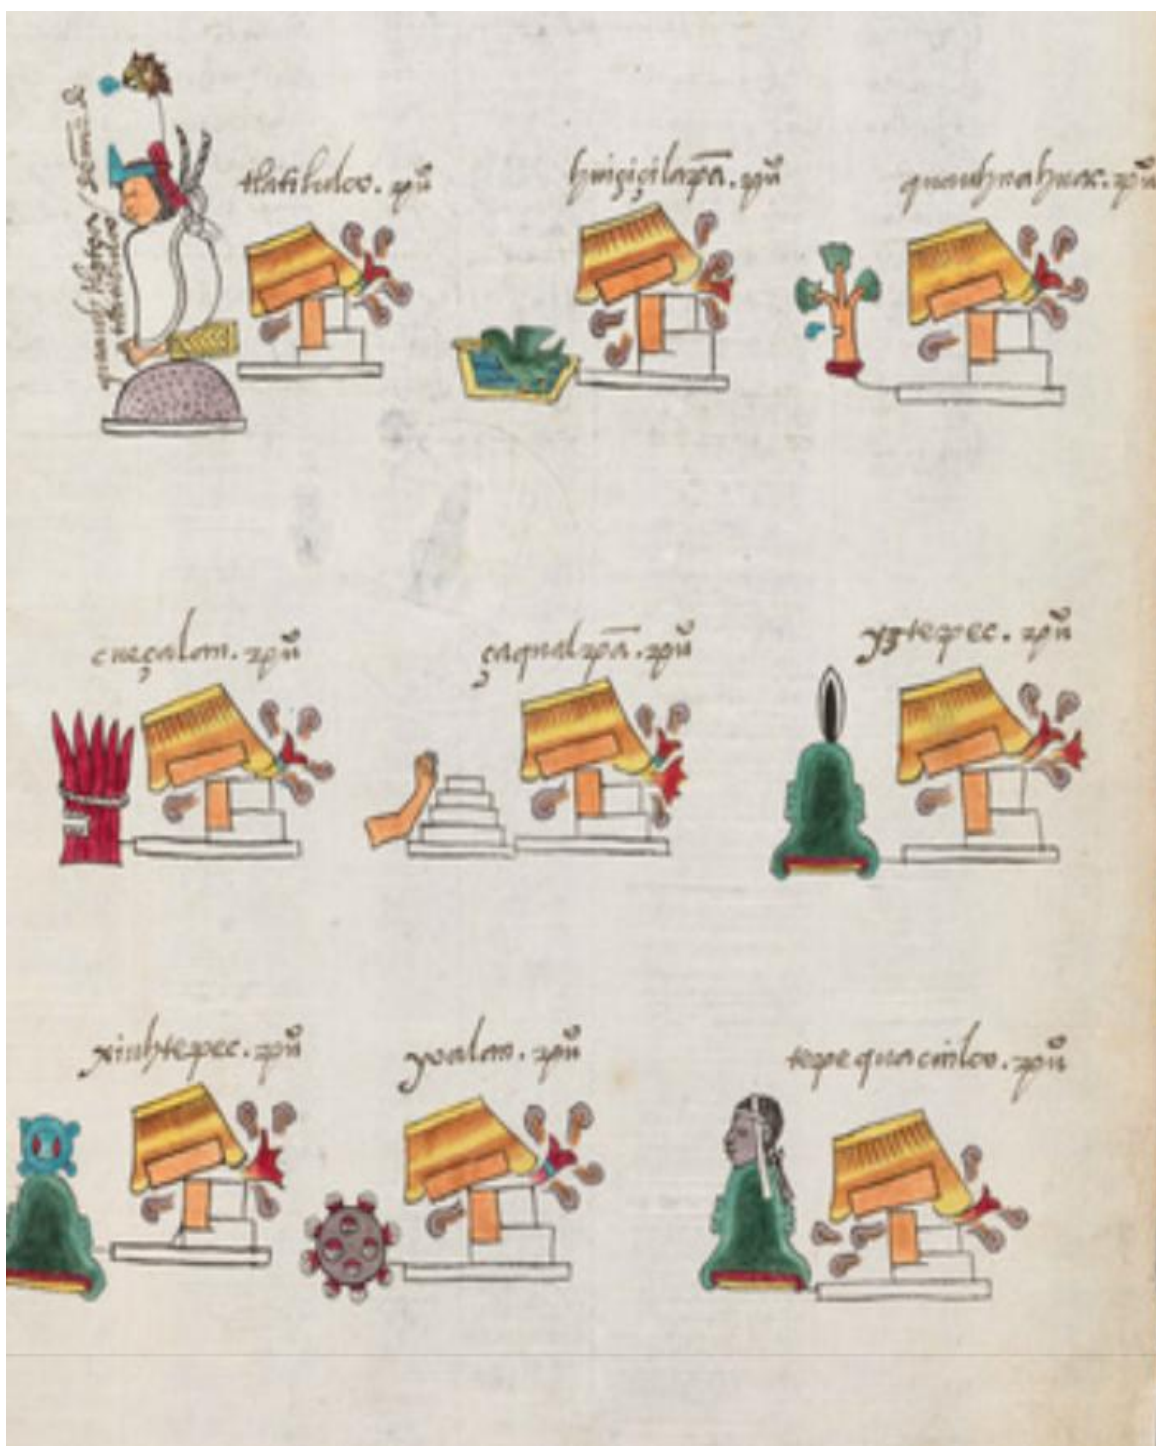 tlatilulco. pu͂o
huiçiçilapā. pu͂o
quauhnahuac. pu͂o
cueçalan. pu͂o
çaqualpā. pu͂o
yztepec. pu͂o
xiuhtepec. pu͂o
yoalan. pu͂o
tepequacuilco. pu͂o